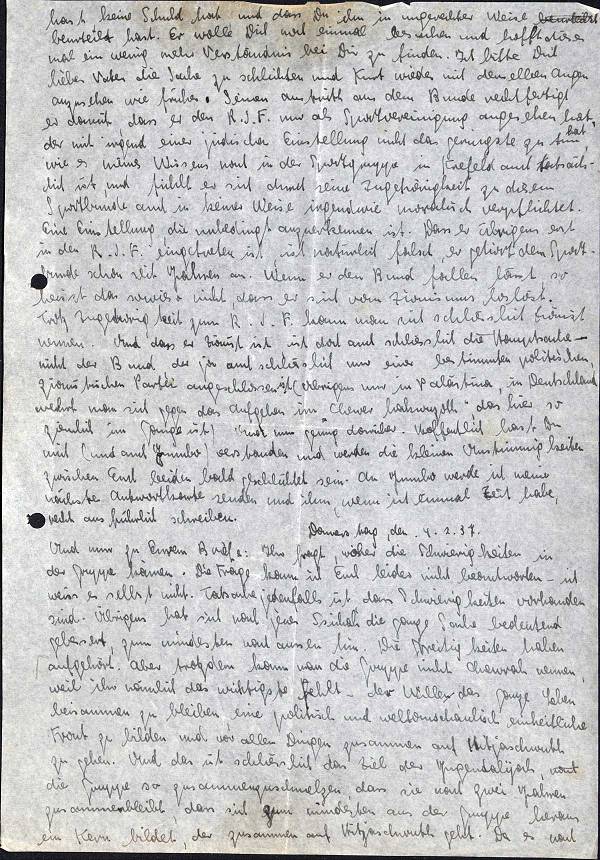 hast keine Schuld hat und dass Du ihn in ungerechter Weise
beurteilt hast. Er wolle Dir noch einmal schreiben und hoffe dieses
mal ein wenig mehr Verständnis bei Dir zu finden. Ich bitte Dich
lieber Vater die Sache zu schlichten und Kurt wieder mit denselben Augen
anzusehen wie früher. Seinen Austritt aus dem Bunde rechtfertigt
er damit, dass er den R.J.F. nur als Sportvereinigung angesehen hat,
der mit irgend einer jüdischen Einstellung nicht das geringste zu tun hat,
wie es meines Wissens nach in der Sportgruppe in Krefeld auch tatsäch-
lich ist und fühlt er sich durch seine Zugehörigkeit zu diesem
Sportbunde auch in keiner Weise irgendwie moralisch verpflichtet.
Eine Einstellung, die unbedingt anzuerkennen ist. Dass er übrigens erst
in den R.J.F. eingetreten ist, ist natürlich falsch, er gehört dem Sport-
bunde schon seit Jahren an. Wenn er den Bund fallen lässt, so
heisst das sowieso nicht, dass er sich vom Zionismus loslöst.
Trotz Zugehörigkeit zum R.J.F. kann man sich schliesslich Zionist
nennen. Und dass er Zionist ist ist doch auch schliesslich die Hauptsache –
nicht der Bund, der ja auch schliesslich nur einer bestimmten politischen,
zionistischen Partei angeschlossen ist (übrigens nur in Palästina, in Deutschland
wehrt man sich gegen das Aufgehen im „Chewer hakwuzoth“, das hier so
ziemlich im Gange ist) Und nun genug darüber. Hoffentlich hast Du
mich (und auch Jumbo) verstanden und werden die kleinen Unstimmigkeiten
zwischen Euch beiden bald geschlichtet sein. An Jumbo werde ich meine
nächste Antwortkarte senden und ihm, wenn ich einmal Zeit habe,
recht ausführlich schreiben.
Donnerstag, den 4.2.37.
Und nun zu Eurem Briefe: Ihr fragt, woher die Schwierigkeiten in
der Gruppe kämen. Die Frage kann ich Euch leider nicht beantworten – ich
weiss es selbst nicht. Tatsache jedenfalls ist dass Schwierigkeiten vorhanden
sind. Übrigens hat sich nach jener Ssichah die ganze Sache bedeutend
gebessert, zum mindesten nach aussen hin. Die Streitigkeiten haben
aufgehört. Aber trotzdem kann man die Gruppe nicht Chawrah nennen,
weil ihr nämlich das wichtigste fehlt – der Wille, das ganze Leben
beisammen zu bleiben eine politisch und weltanschaulich einheitliche
Front zu bilden und vor allen Dingen zusammen auf Hitjaschwuth
zu gehen. Und das ist schliesslich das Ziel der Jugendalijah,
die Gruppe so zusammenzuschmelzen, dass sie nach zwei Jahren
zusammenbleibt, dass sich zum mindesten aus der Gruppe heraus
ein Kern bildet, der zusammen auf Hitjaschwuth geht. Da es nach